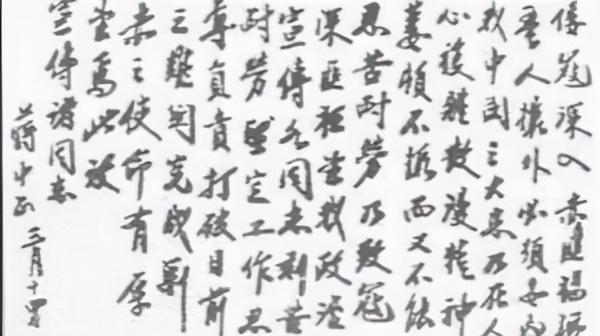 倭寇深入赤匪禍
吾人攘外必須安內
我中國之大患乃在人
心複雜散漫精神
萎頓不振而又不能
忍苦耐勞乃致寇
深匪猖望我政治
宣傳各同志刻苦
耐勞堅定工作忍
辱負責打破目前
之難關完成剿
赤之使命有厚
望焉此致
宣傳諸同志
蔣中正 三月十四